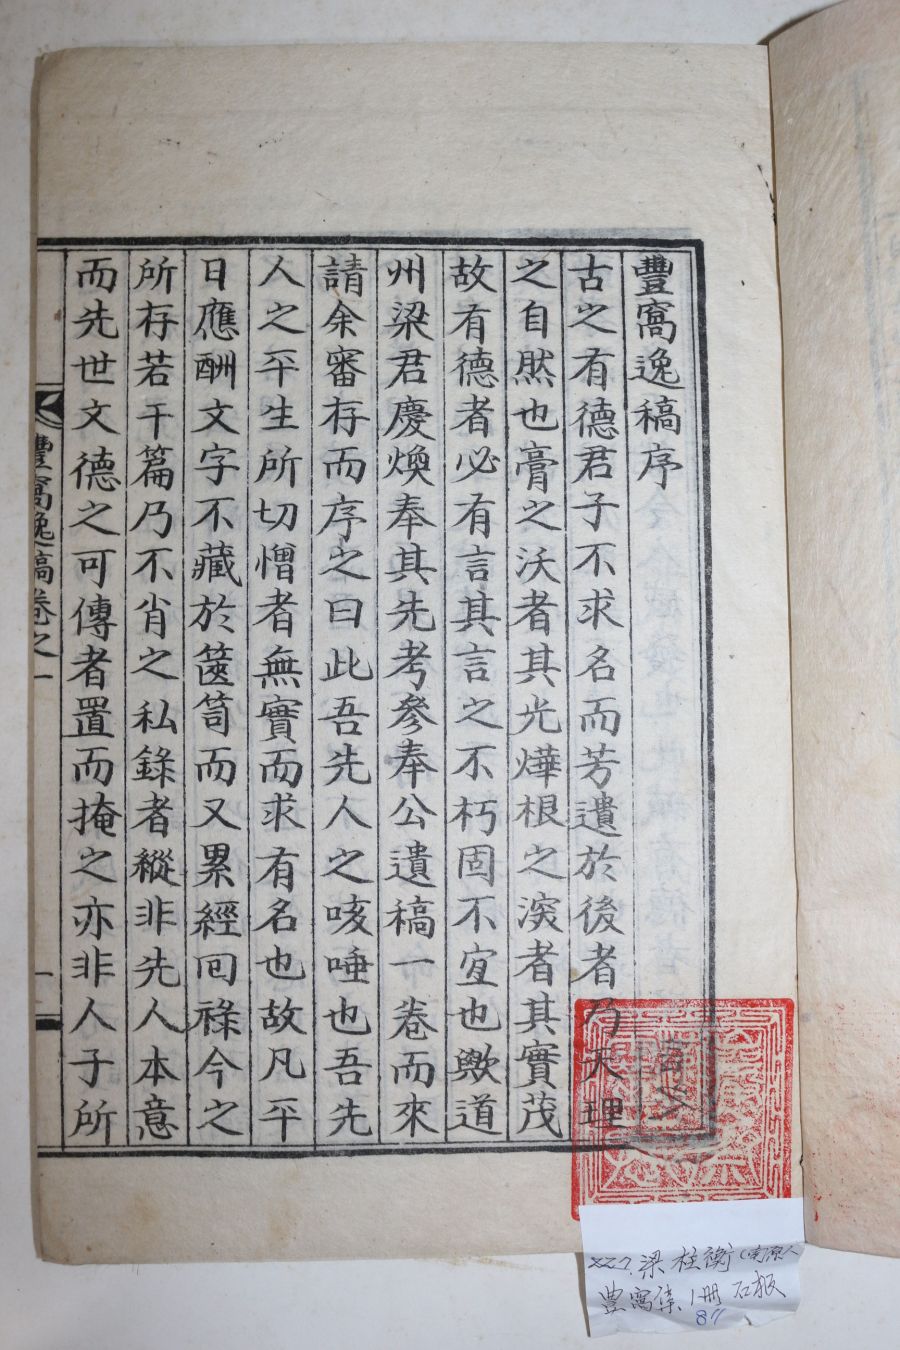 豐窩逸稿序
古之有德君子不求名而芳遺於後者乃天理
之自然也膏之沃者其光燁根之深者其實茂
故有德者必有言其言之不朽固不宜也歟道
州梁君慶煥奉其先考參奉公遺稿一卷而來
請余審存而序之曰此吾先人之咳唾也吾先
人之平生所切憎者無實而求有名也故凡平
日應酬文字不藏於篋笥而又累經回祿今之
所存若干篇乃不肖之私錄者縱非先人本意
而先世文德之可傳者置而掩之亦非人子所
豐窩逸稿卷之一
一
梁柱衡(南原人
豊窩集 1冊 石板